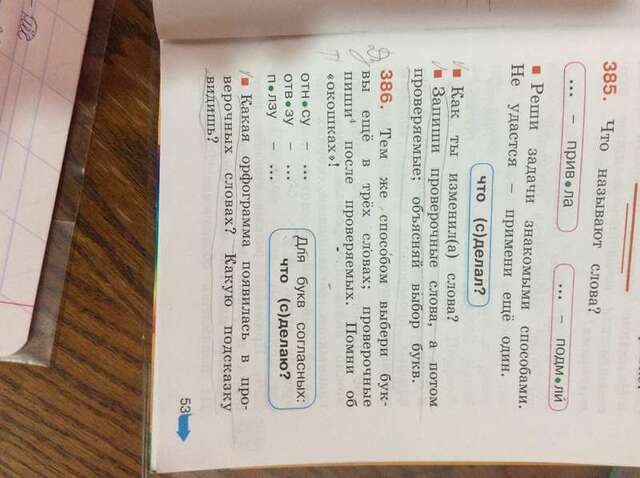 385. Что называют слова?
... – прив•ла
... – подм•ли́
▪ Реши задачи знакомыми способами.
Не удастся – примени ещё один.
что (с)делал?
▪ Как ты изменил(а) слова?
▪ Запиши проверочные слова, а потом
проверяемые; объясняй выбор букв.
386. Тем же способом выбери бук-
вы ещё в трёх словах; проверочные
пиши⁴ после проверяемых. Помни об
«окошках»!
отн•су – ...
отв•зу – ...
п•лзу – ...
Для букв согласных:
что (с)делаю?
▪ Какая орфограмма появилась в про-
верочных словах? Какую подсказку
видишь?
53